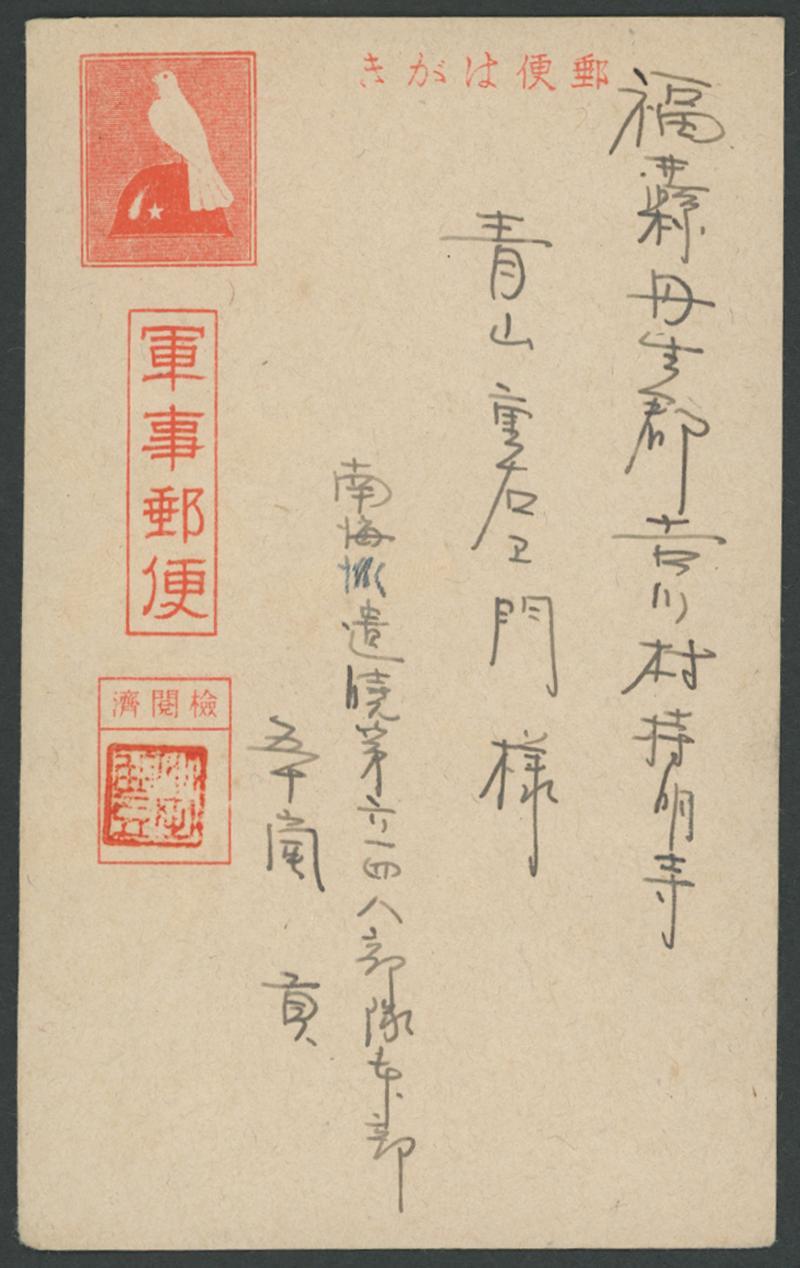 郵便はがき
福井縣丹生郡吉川村持明寺
青山重右ヱ門様
南海派遣暁第六一四八部隊本部
五十嵐 貢
軍事郵便
檢閲濟